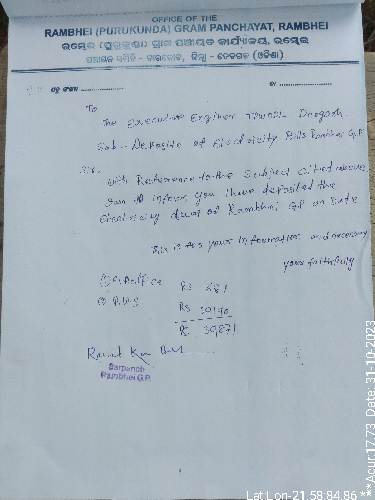 OFFICE OF THE
RAMBHEI (PURUKUNDA) GRAM PANCHAYAT, RAMBHEI
ରମ୍ଭେଇ (ପୁରୁକୁଣ୍ଡା) ଗ୍ରାମ ପଞ୍ଚାୟତ କାର୍ଯ୍ୟାଳୟ, ରମ୍ଭେଇ
ପଞ୍ଚାୟତ ସମିତି - ବାରକୋଟ, ଜିଲ୍ଲା - ଦେବଗଡ (ଓଡ଼ିଶା)
ପତ୍ର ସଂଖ୍ୟା
ତା
To
The Executive Engineer Deogarh
Sub - Deposite of Electricity Bills Rambhei G.P
Sir,
with Reference to the Subject cited above
I am to inform you i have deposited the
Electricity dues of Rambhei GP on Date
This is for your Information and necessary
yours faithfully
① GP office Rs 681
② Rs
Rs 30,871
Sarpanch
Rambhei G.P.
Lat Lon-21.58,84.86 ***Acur:17.73, Date: 31-10-2023